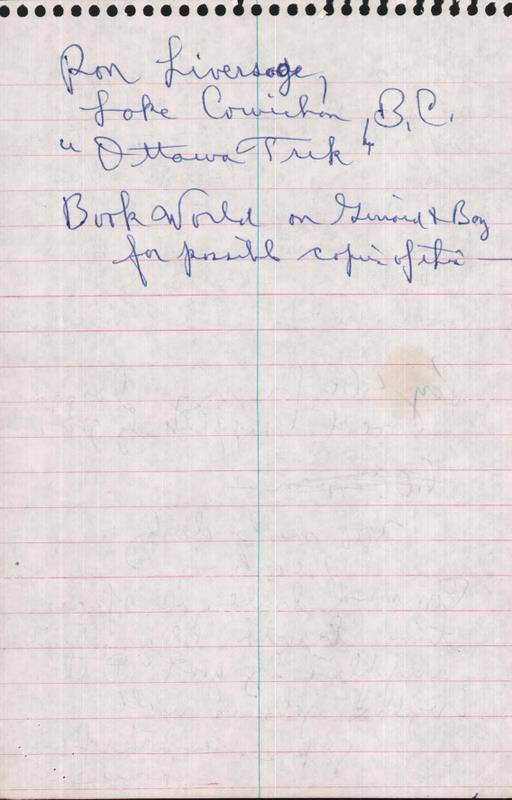 Ron Liversage,
Lake Cowichan, B.C.
"Ottawa Trek"
Book World on Gerrard & Bay
for possible copies of this —